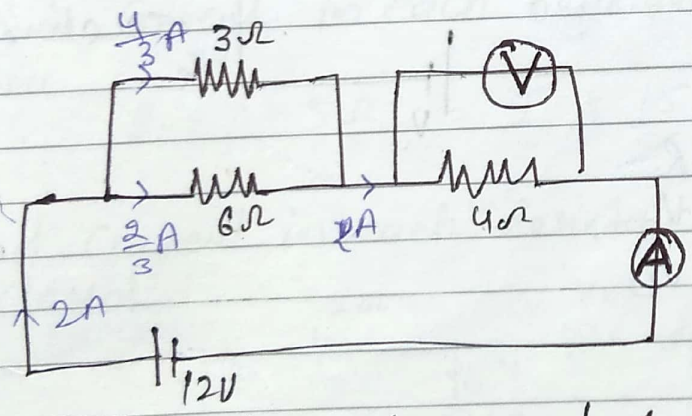 4/3 A
3Ω
V
6Ω
2/3 A
2A
4Ω
A
2A
12V